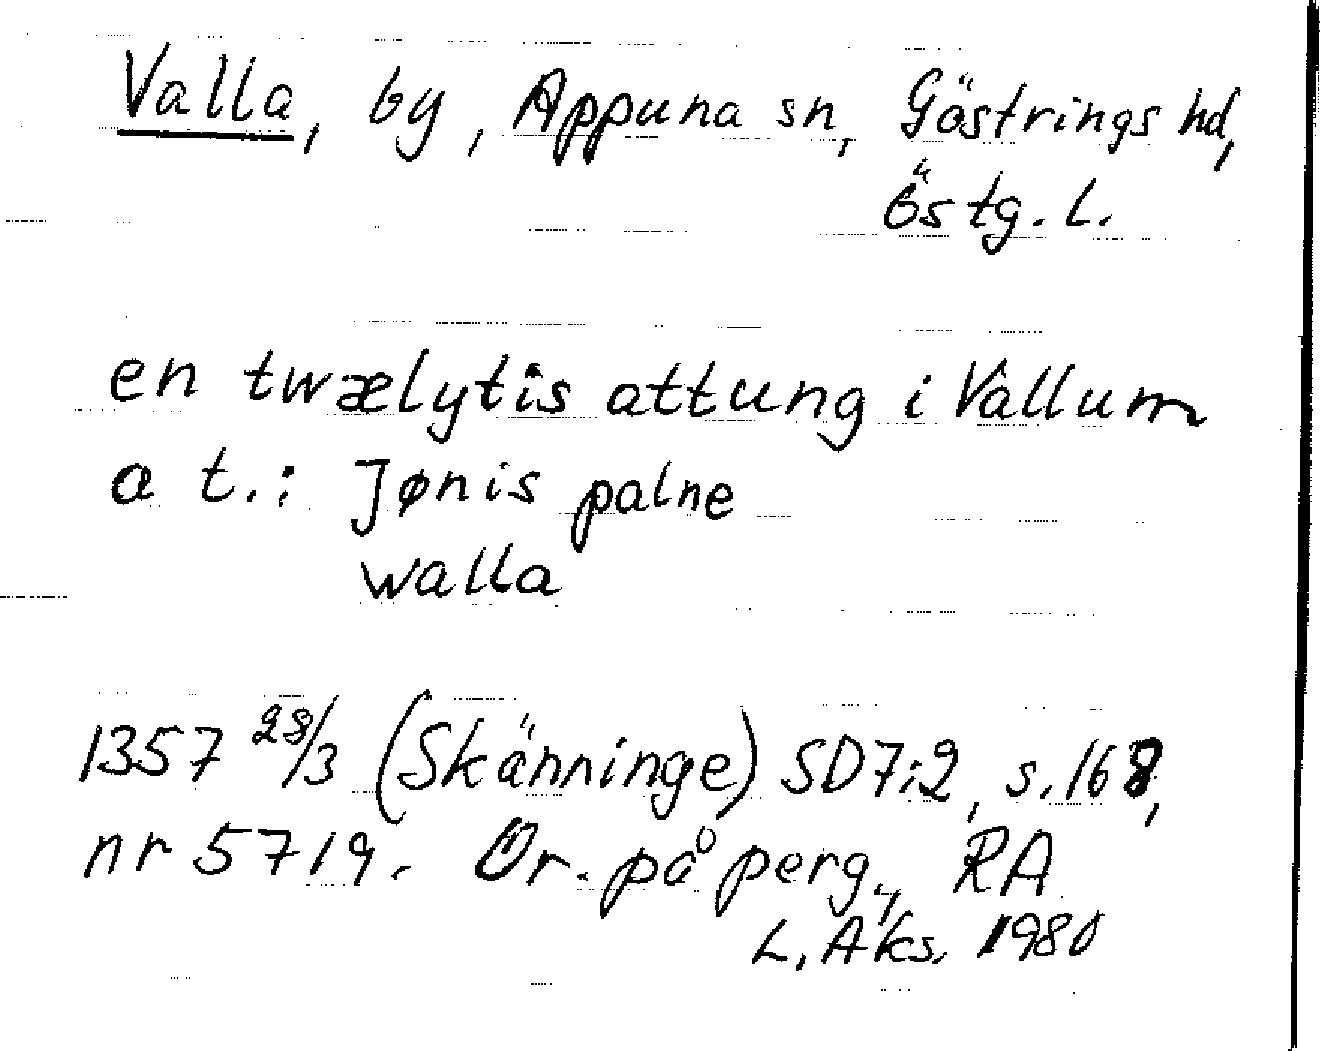 Valla, by, Appuna sn, Göstrings hd,
Östg. l.
en twælytis attung i Vallum
a t.: Jønis palne
walla
1357 28/3 (Skänninge) SD7:2, s. 168,
nr 5719. Or. på perg., RA
L. Aks. 1980